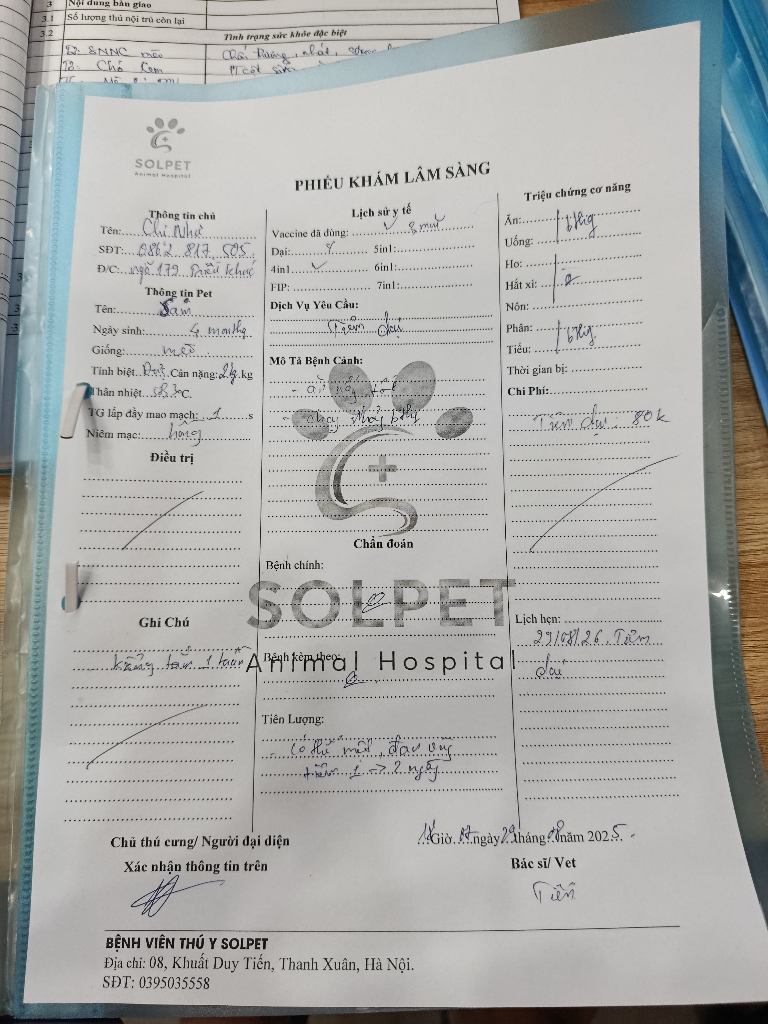 3 Nội dung bàn giao
3.1 Số lượng thú nội trú còn lại
3.2 Tình trạng sức khỏe đặc biệt
SOLPET
Animal Hospital
PHIẾU KHÁM LÂM SÀNG
Thông tin chủ
Tên: Chị Như
SĐT: 0862 817 505
Đ/C: ngõ 179 Triều Khúc
Thông tin Pet
Tên: Sam
Ngày sinh: 4 months
Giống: mèo
Tính biệt. Đực Cân nặng: 2kg.kg
Thân nhiệt. °C.
TG lấp đầy mao mạch: 1 s
Niêm mạc: hồng
Điều trị
Ghi Chú
kiêng tắm 1 tuần
Lịch sử y tế
Vaccine đã dùng: 2 mũi
Dại: 5in1:
4in1 ✓ 6in1:
FIP: 7in1:
Dịch Vụ Yêu Cầu:
Tiêm dại
Mô Tả Bệnh Cảnh:
- ăn uống tốt
Chẩn đoán
Bệnh chính:
SOLPET
Bệnh kèm theo:
Animal Hospital
Tiên Lượng:
- Có thể mệt, đau vùng
tiêm 1 -> 2 ngày
Triệu chứng cơ năng
Ăn: bthg
Uống:
Ho:
Hắt xì:
Nôn:
Phân: bthg
Tiểu:
Thời gian bị:
Chi Phí:
Tiêm dại: 80k
Lịch hẹn:
29/08/26. Tiêm
dại
Chủ thú cưng/ Người đại diện
Xác nhận thông tin trên
18 Giờ 07 ngày 29 tháng 08 năm 2025.
Bác sĩ/ Vet
Tiên
BỆNH VIỆN THÚ Y SOLPET
Địa chỉ: 08, Khuất Duy Tiến, Thanh Xuân, Hà Nội.
SĐT: 0395035558